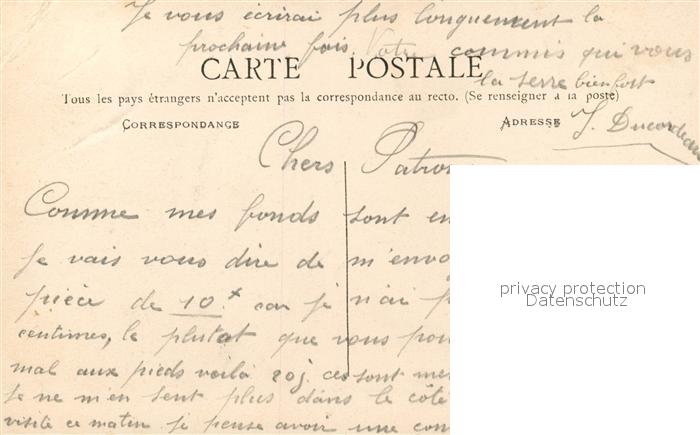 Je vous écrirai plus longuement la
prochaine fois. Votre commis qui vous
la serre bien fort
CARTE POSTALE
Tous les pays étrangers n'acceptent pas la correspondance au recto. (Se renseigner à la poste)
CORRESPONDANCE
ADRESSE
J. Ducordeau
Chers Patrons
Comme mes fonds sont en
Je vais vous dire de m'envo
pièce de 10 f car je n'ai p
centimes, le plutat que vous pou
mal aux pieds voilà 20 j. ces sont mes
Je ne m'en sent plus dans le côté
visite ce matin je pense avoir une con
privacy protection
Datenschutz